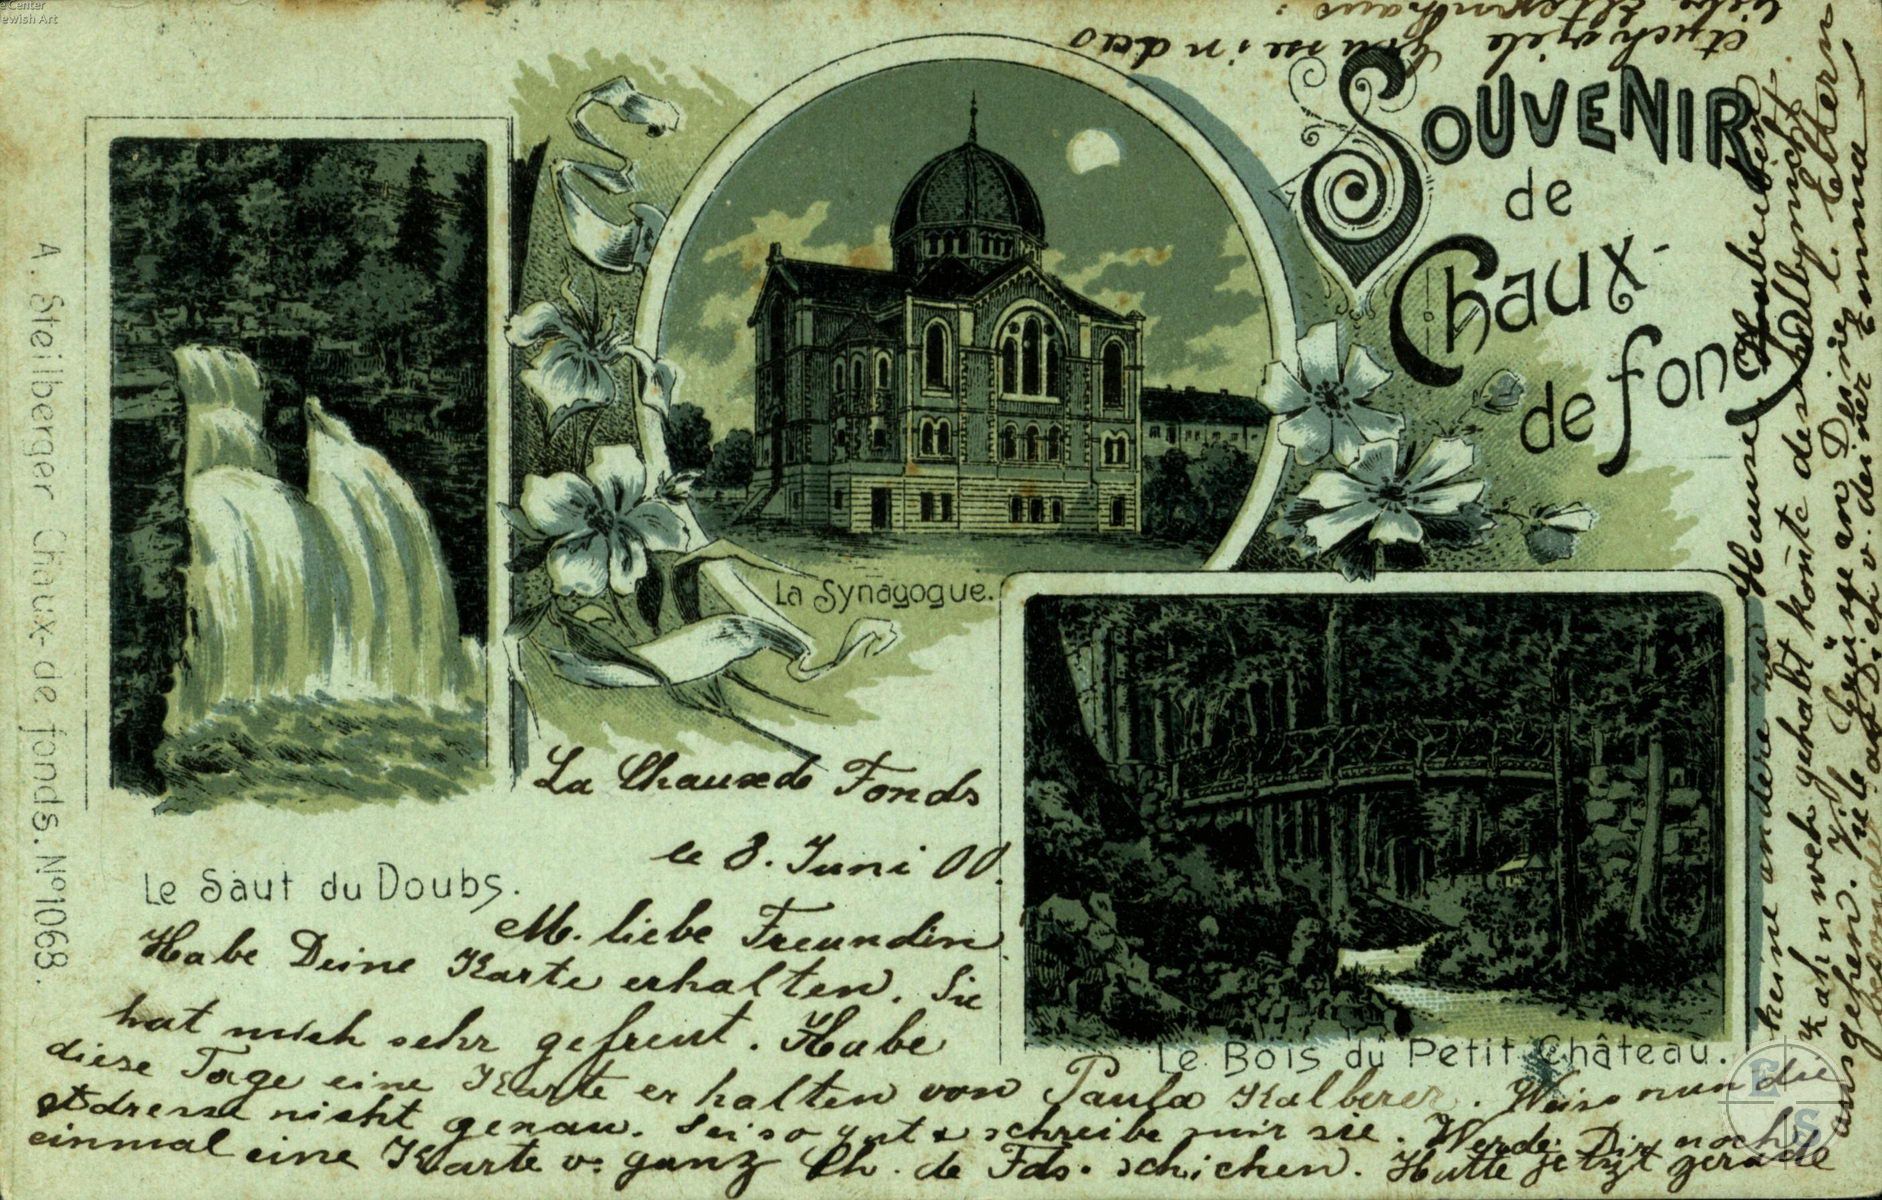 e Center
ewish Art
SOUVENIR
de
Chaux-
de fonds
A. Steilberger Chaux-de fonds. No 1068.
La Synagogue.
Le Saut du Doubs.
Le Bois du Petit Château.
La Chaux de Fonds
le 8. Juni 00.
M. liebe Freundin
Habe Deine Karte erhalten. Sie
hat mich sehr gefreut. Habe
diese Tage eine Karte erhalten von Paula Kalberer. Weiss nun die
Adresse nicht genau. Sei so gut & schreibe mir sie. Werde Dir noch
einmal eine Karte v. ganz Ch. de Fds. schicken. Hatte jetzt gerade
keine andere zu Hause. Habe
Zahnweh gehabt konnte des
ausgehen. Viele Grüsse an Deine l. Eltern
besonders
Viele
an Dich v. deiner Emma
Auch viele Grüsse in das
liebe Elternhaus.
E S